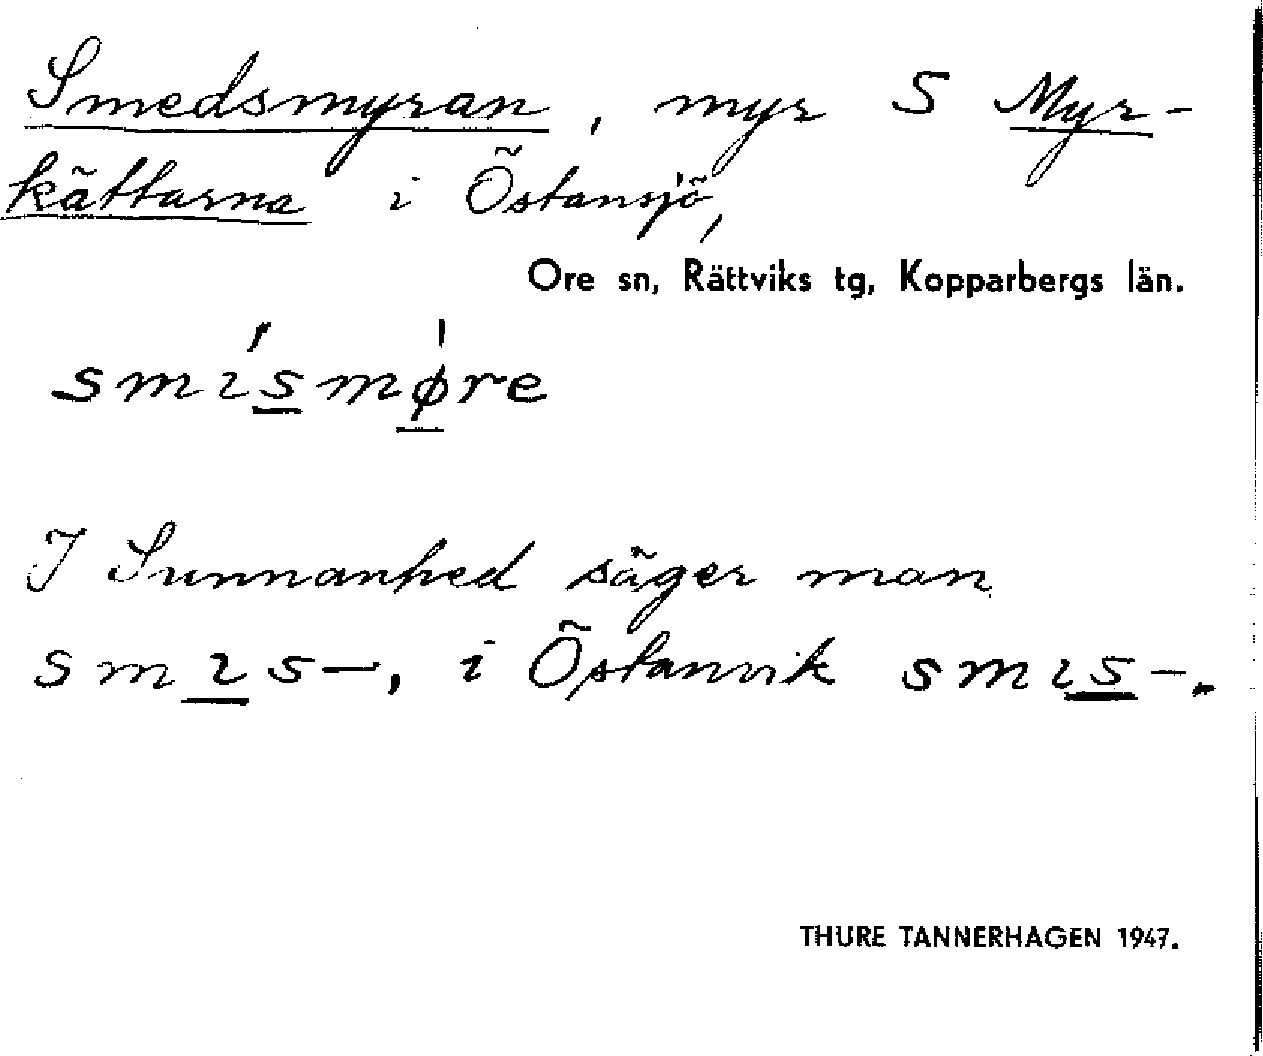 Smedsmyran, myr S Myr-
kättarna i Östansjö,
Ore sn, Rättviks tg, Kopparbergs län.
smɩ́smø̍re
I Sunnanhed säger man
smɩs—, i Östanvik smɩs—.
THURE TANNERHAGEN 1947.